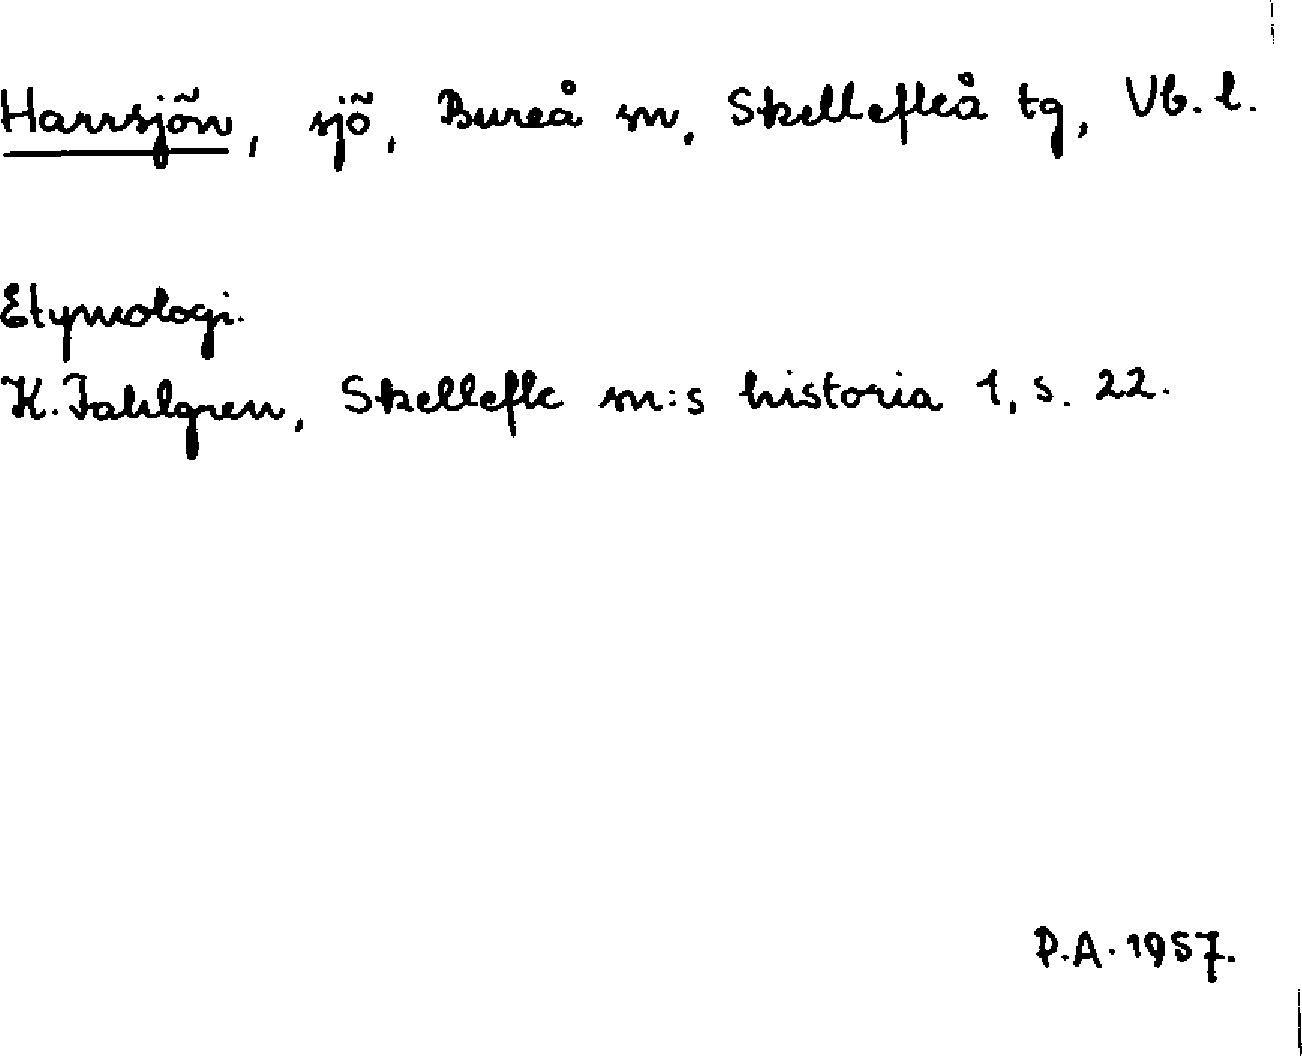 Harrsjön, sjö, Bureå sn, Skellefteå tg, Vb. l.
Etymologi.
K. Fahlgren, Skellefte sn:s historia 1, s. 22.
P.A. 1957.